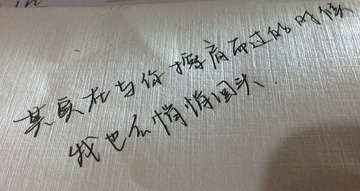 其实在与你擦肩而过的时候
我也在悄悄回头.